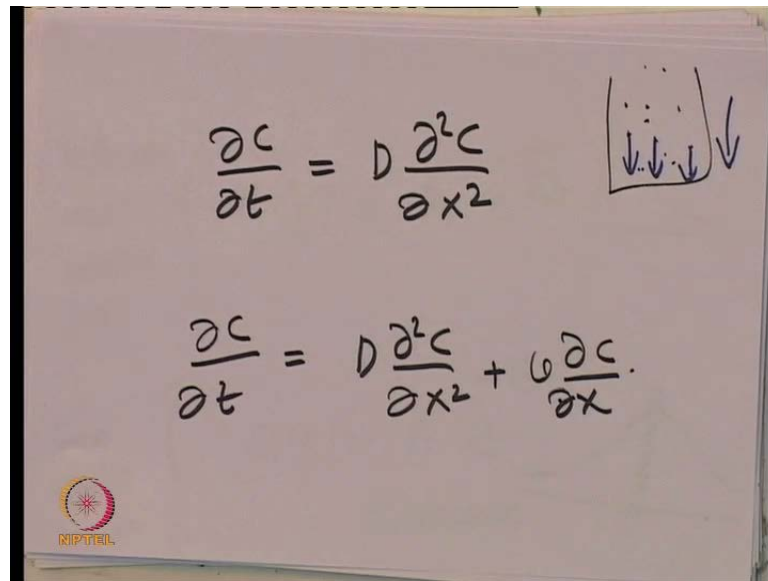 ∂C/∂t = D ∂²C/∂x²
∂C/∂t = D ∂²C/∂x² + υ ∂C/∂x.
NPTEL